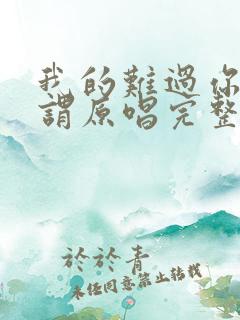 我的難過你
謂原唱完整
於於青
未經同意禁止轉載